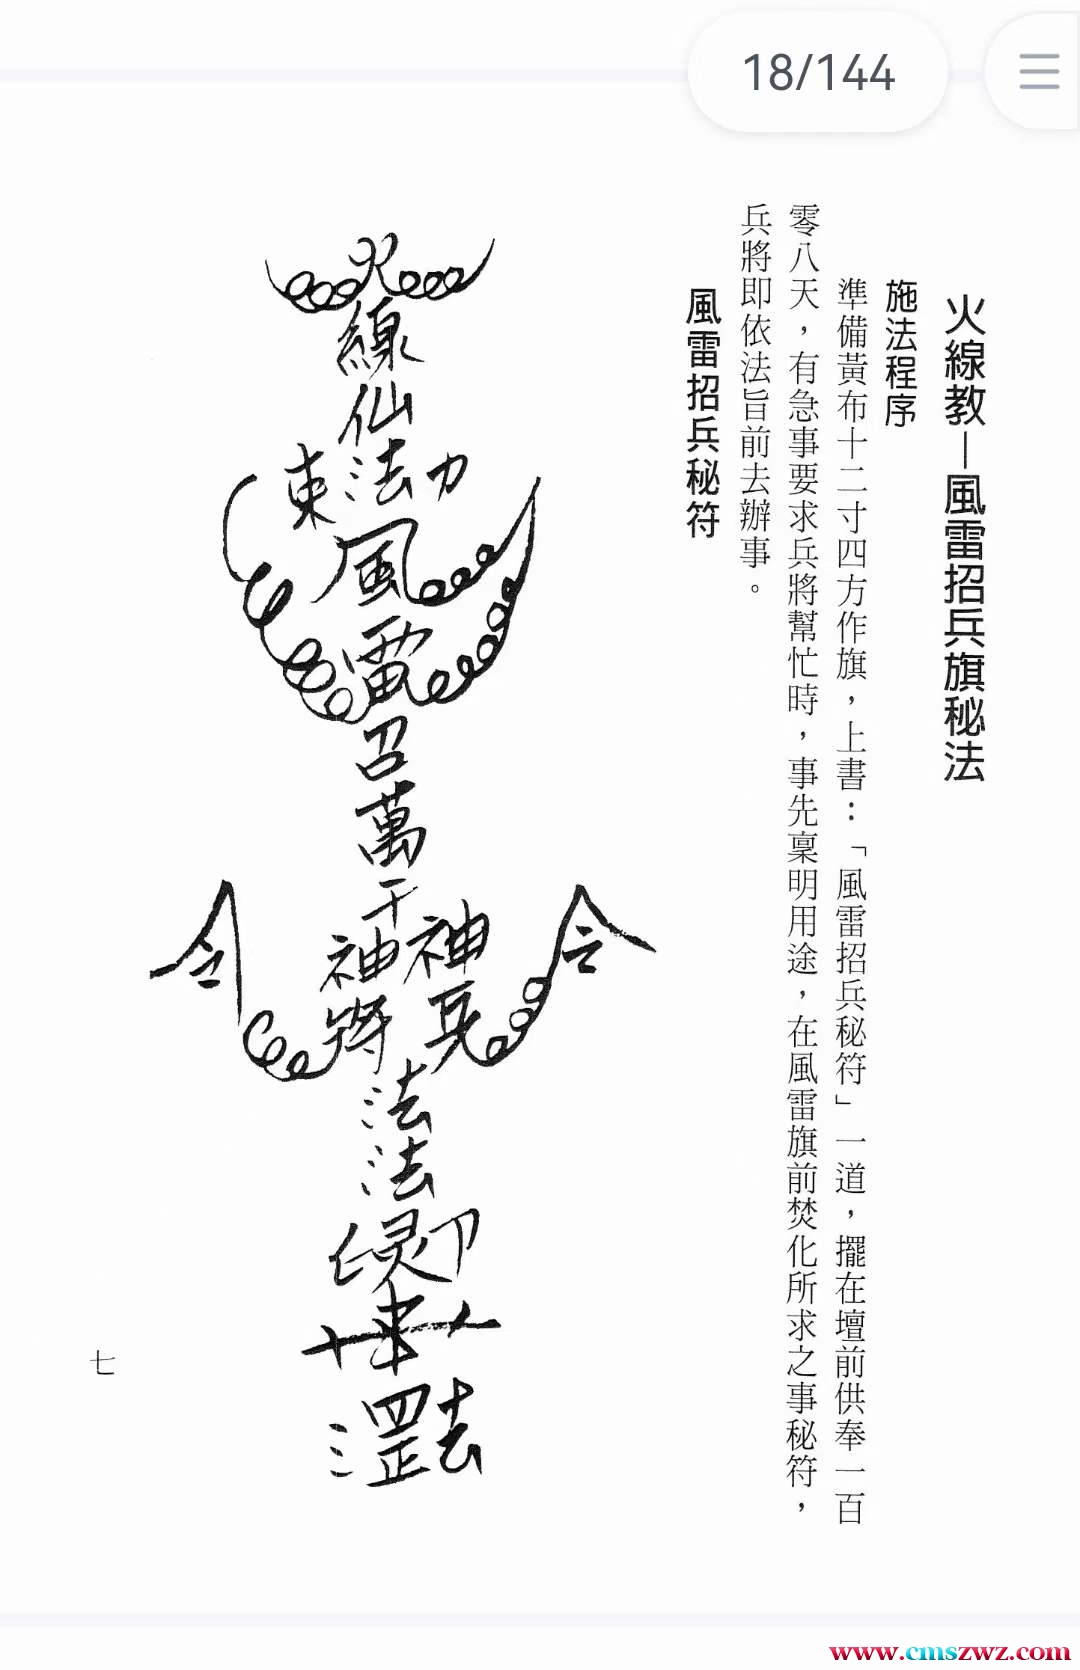 18/144
火線教—風雷招兵旗秘法
施法程序
準備黃布十二寸四方作旗，上書：「風雷招兵秘符」一道，擺在壇前供奉一百
零八天，有急事要求兵將幫忙時，事先稟明用途，在風雷旗前焚化所求之事秘符，
兵將即依法旨前去辦事。
風雷招兵秘符
火線仙法
東
力
風雷召萬千
神兵
神將
令
令
法法
七
www.cmszwz.com